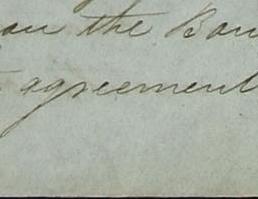 on the Ban
agreement